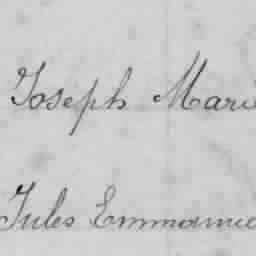 Joseph Marie
Jules Emmanue